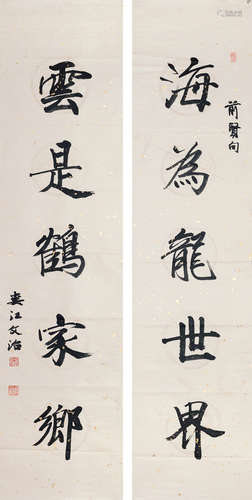 海為龍世界
前賢句
雲是鶴家鄉
婁江文治